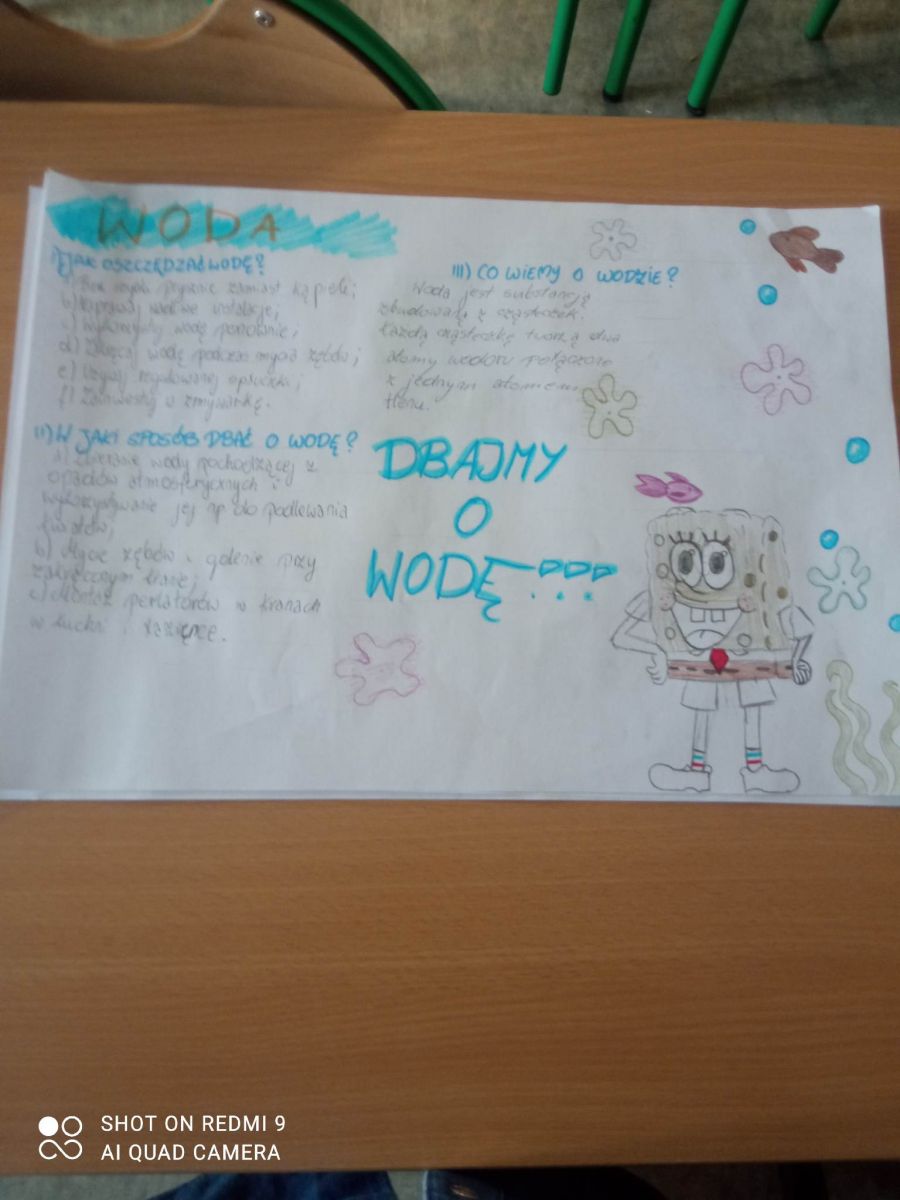 WODA
I) JAK OSZCZĘDZAĆ WODĘ?
a) Bierz szybki prysznic zamiast kąpieli;
b) Napraw wadliwe instalacje;
c) Wykorzystuj wodę ponownie;
d) Zakręcaj wodę podczas mycia zębów;
e) Używaj regulowanej spłuczki;
f) Zainwestuj w zmywarkę.
II) W JAKI SPOSÓB DBAĆ O WODĘ?
a) Zbieranie wody pochodzącej z
opadów atmosferycznych i
wykorzystywanie jej np do podlewania
kwiatów;
b) Mycie zębów i golenie przy
zakręconym kranie;
c) Montaż perlatorów w kranach
w kuchni i łazience.
III) CO WIEMY O WODZIE?
Woda jest substancją
zbudowaną z cząsteczek.
Każdą cząsteczkę tworzą dwa
atomy wodoru połączone
z jednym atomem
tlenu.
DBAJMY
O
WODĘ???
SHOT ON REDMI 9
AI QUAD CAMERA